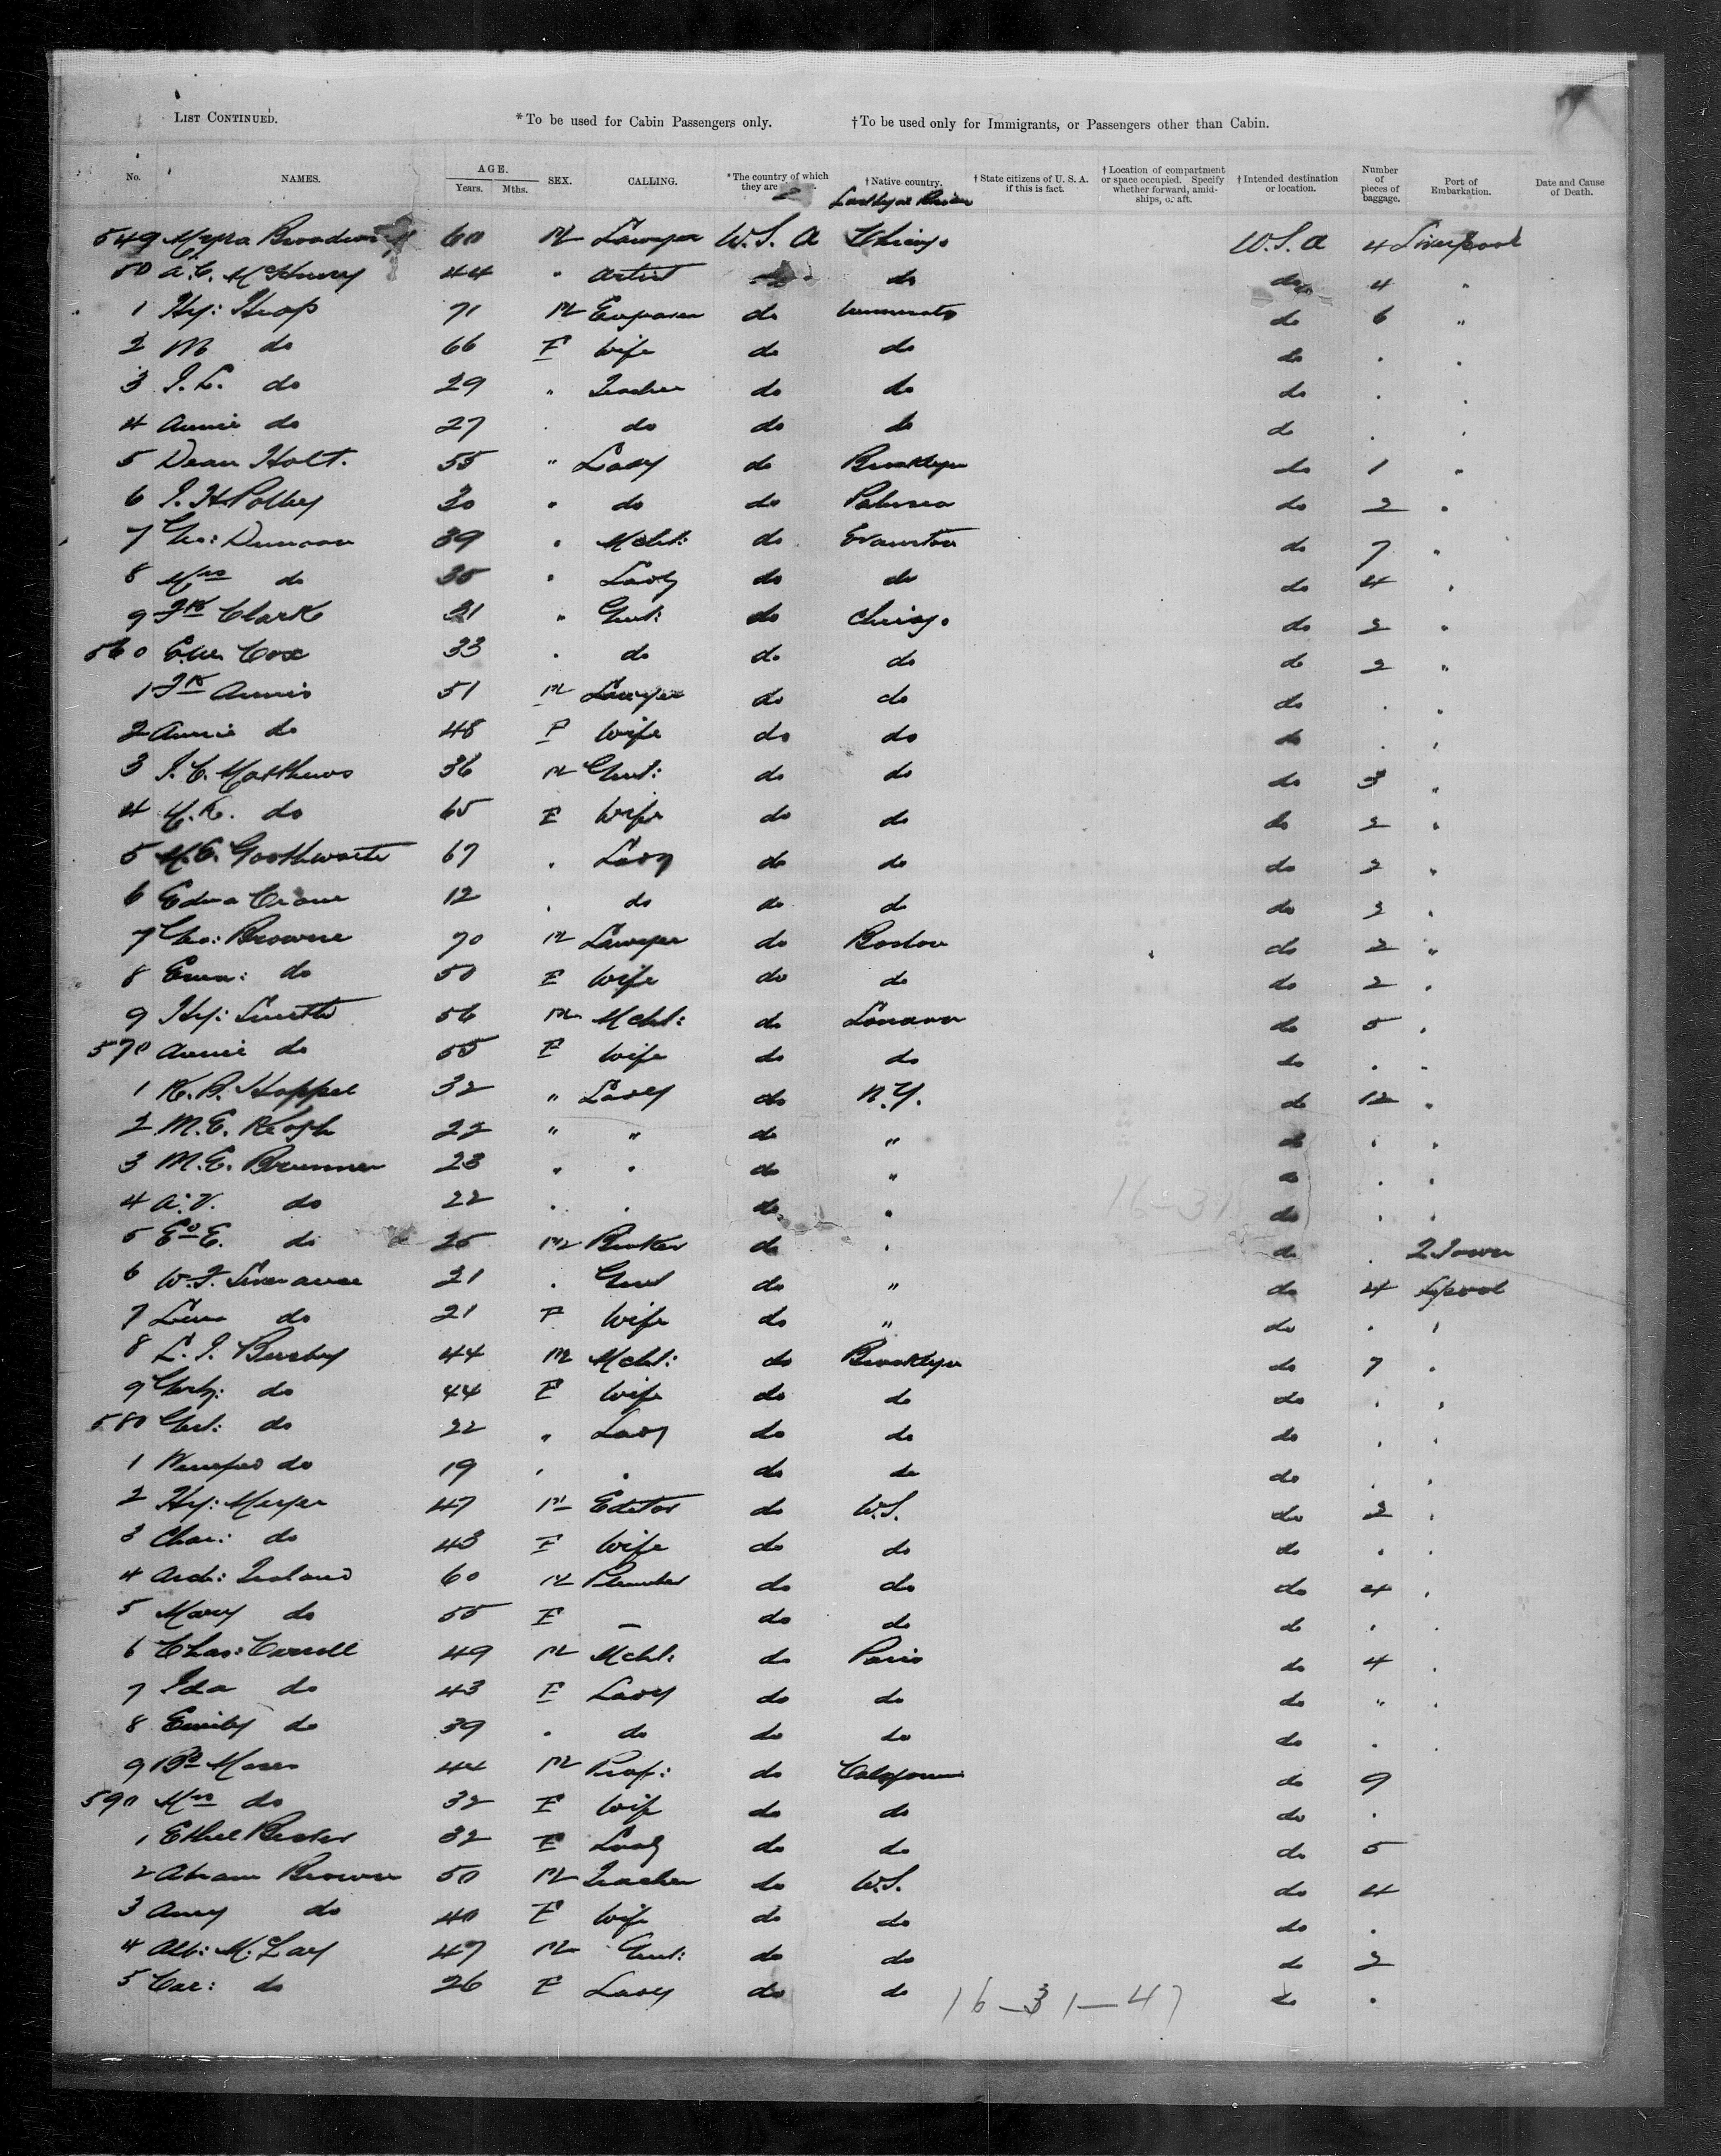 LIST CONTINUED. *To be used for Cabin Passengers only. †To be used only for Immigrants, or Passengers other than Cabin.
No. NAMES. AGE. Years. Mths. SEX. CALLING. *The country of which they are †Native country. †State citizens of U. S. A. if this is fact. †Location of compartment or space occupied. Specify whether forward, amidships, or aft. †Intended destination or location. Number of pieces of baggage. Port of Embarkation. Date and Cause of Death.
549 Myra 60 M Lawyer U.S.A Chicago U.S.A 4 Liverpool
50 A.C. McHenry 44 " Artist do do 4 "
1 Hy: 71 M Engraver do do 6 "
2 M do 66 F Wife do do do . .
3 do 29 " Teacher do do do . .
4 Annie do 27 . do do do do . .
5 Dean Holt. 55 " Lady do Brooklyn do 1 "
6 30 " do do do 2 "
7 Geo: Duncan 39 " Mcht: do Evanston do 7 "
8 Mrs do 35 " Lady do do do 4 .
9 Clark 31 " Gent: do Chicago do 2 "
560 Cox 33 . do do do do 2 "
1 Annis 51 M Lawyer do do do . .
2 Annie do 48 F Wife do do do . .
3 Matthews 36 M Gent: do do do 3 "
4 do 65 F Wife do do do 2 "
5 M.C. Goothwaite 67 . Lady do do do 2 "
6 Edna Crane 12 . do do do do 2 .
7 Geo: Browne 70 M Lawyer do Boston do 2 "
8 Emma: do 50 F Wife do do do 2 .
9 Hy: Smith 56 M Mcht: do London do 5 .
570 Annie do 55 F Wife do do do . .
1 K.B. Hoppel 32 " Lady do N.Y. do 12 "
2 M.E. Keogh 22 " " do " do . .
3 M.E. Brunner 23 " " do " do . .
4 A.V. do 22 . . do " do . .
5 Ed E. do 25 M do . do . Q Town
6 21 . Gent do " do 4 L'pool
7 do 21 F Wife do " do . .
8 44 M Mcht: do Brooklyn do 7 .
9 do 44 F Wife do do do . .
580 Gert: do 22 " Lady do do do . .
1 Winifred do 19 . . do do do . .
2 Hy: Meyer 47 M Editor do U.S. do 2 .
3 Char: do 43 F Wife do do do . .
4 Arch: Ireland 60 M Plumber do do do 4 .
5 Mary do 55 F — do do do . .
6 Chas: Carroll 49 M Mcht: do Paris do 4 .
7 Ida do 43 F Lady do do do " .
8 Emily do 39 . do do do do . .
9 Moses 44 M Prof: do California do 9
590 Mrs do 32 F Wife do do do .
1 Ethel 32 F Lady do do do 5
2 Abram Brown 50 M Teacher do U.S. do 4
3 Amy do 40 F Wife do do do .
4 Alb: 47 M Gent: do do do 2
5 Car: do 26 F Lady do do do .
16—31—47